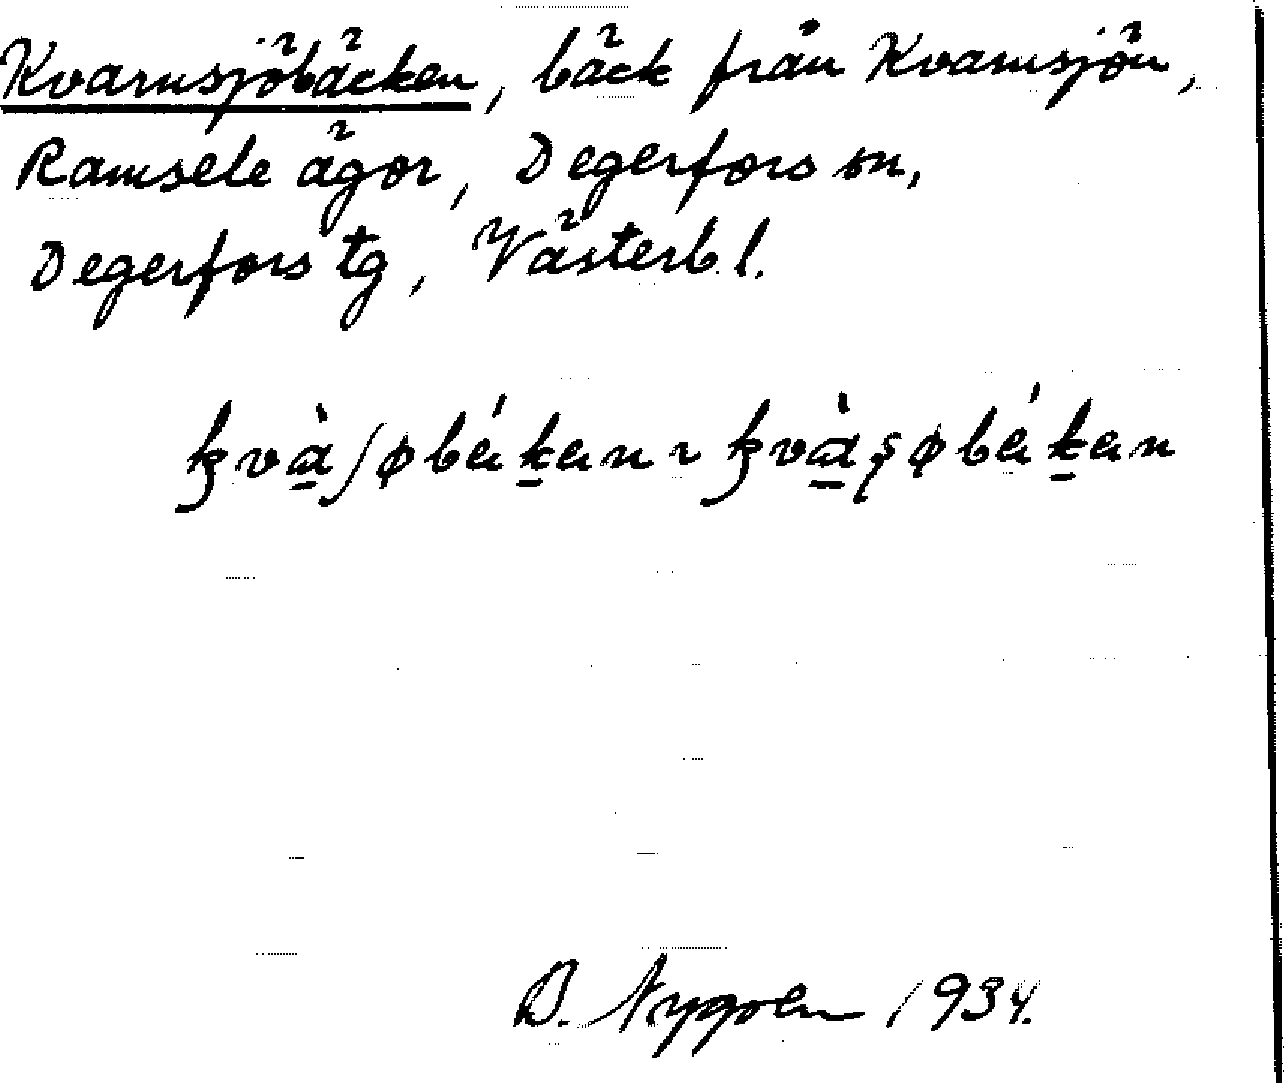 Kvarnsjöbäcken, bäck från Kvarnsjön,
Ramsele ägor, Degerfors sn,
Degerfors tg, Västerb. l.
kvà̱ʃøbék̠en ~ kvà̱ʂøbék̠en
B. Nygren 1934.